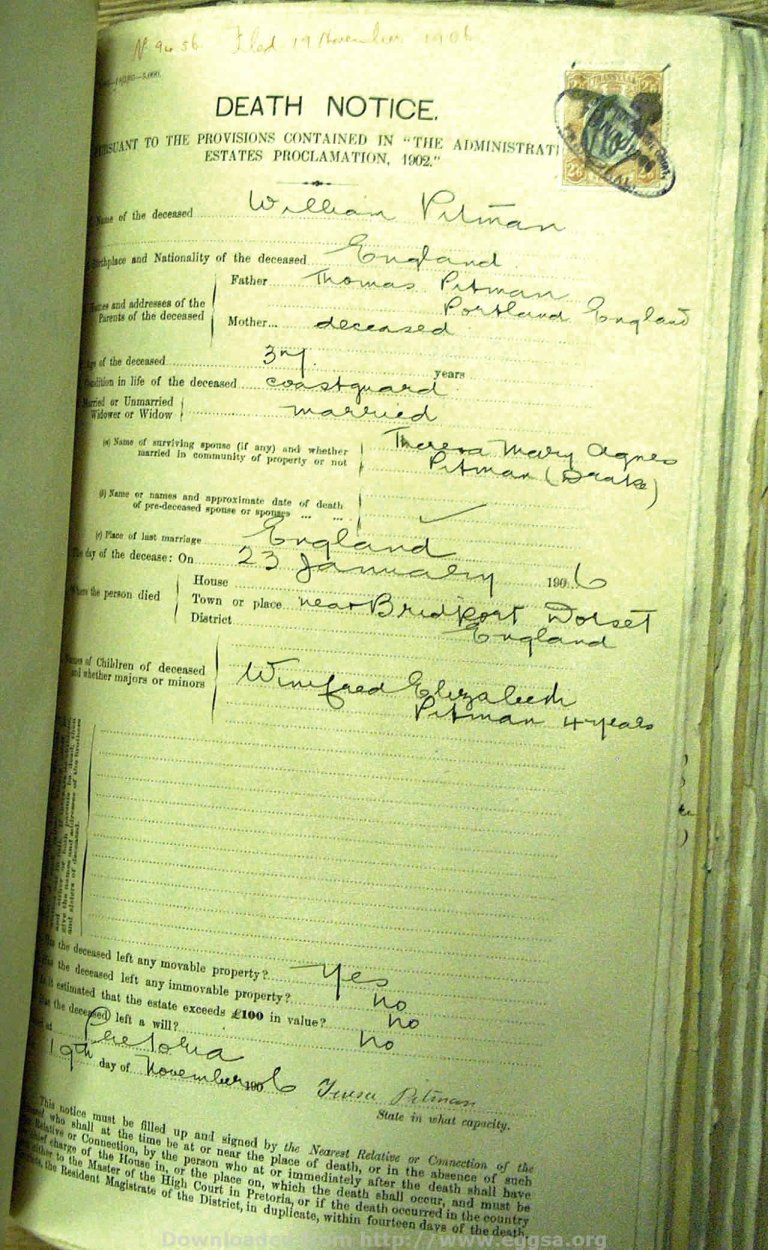 Filed 19 November 1906
DEATH NOTICE.
PURSUANT TO THE PROVISIONS CONTAINED IN "THE ADMINISTRATI
ESTATES PROCLAMATION, 1902."
TRANSVAAL
Name of the deceased William Pitman
Birthplace and Nationality of the deceased England
Names and addresses of the Parents of the deceased
Father Thomas Pitman
Portland England
Mother... deceased
Age of the deceased 37 years
Condition in life of the deceased coastguard
Married or Unmarried
Widower or Widow married
(a) Name of surviving spouse (if any) and whether
married in community of property or not
Theresa Mary Agnes
Pitman (Drake)
(b) Name or names and approximate date of death
of pre-deceased spouse or spouses ... ...
(c) Place of last marriage England
The day of the decease: On 23 January 1906
Where the person died
House
Town or place near Bridport Dorset
District England
Names of Children of deceased
and whether majors or minors
Winifred Elizabeth
Pitman 4 years
give the names and addresses of the brothers
and sisters of deceased.
Has the deceased left any movable property? Yes
Has the deceased left any immovable property? no
Is it estimated that the estate exceeds £100 in value? no
Has the deceased left a will? no
at Pretoria
19th day of November 1906 Teresa Pitman
State in what capacity.
This notice must be filled up and signed by the Nearest Relative or Connection of the
who shall at the time be at or near the place of death, or in the absence of such
Relative or Connection, by the person who at or immediately after the death shall have
chief charge of the House in, or the place on, which the death shall occur, and must be
either to the Master of the High Court in Pretoria, or if the death occurred in the country
the Resident Magistrate of the District, in duplicate, within fourteen days of the death.
Downloaded from http://www.eggsa.org